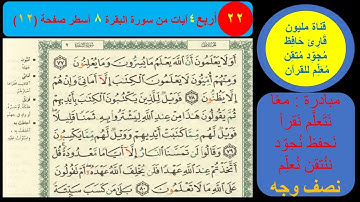 ٢٢ أربع ٤ آيات من سورة البقرة ٨ أسطر صفحة (١٢)
قناة مليون
قارئ حافظ
مُجوّد مُتقن
مُعلّم للقرآن
مبادرة : معًا
نتعلّم نقرأ
نحفظ نُجوّد
نتقن نُعلّم
نصف وجه
أَوَلَا يَعْلَمُونَ أَنَّ اللَّهَ يَعْلَمُ مَا يُسِرُّونَ وَمَا يُعْلِنُونَ ٧٧
وَمِنْهُمْ أُمِّيُّونَ لَا يَعْلَمُونَ الْكِتَابَ إِلَّا أَمَانِيَّ وَإِنْ هُمْ
إِلَّا يَظُنُّونَ ٧٨ فَوَيْلٌ لِلَّذِينَ يَكْتُبُونَ الْكِتَابَ بِأَيْدِيهِمْ
ثُمَّ يَقُولُونَ هَٰذَا مِنْ عِنْدِ اللَّهِ لِيَشْتَرُوا بِهِ ثَمَنًا قَلِيلًا
فَوَيْلٌ لَهُمْ مِمَّا كَتَبَتْ أَيْدِيهِمْ وَوَيْلٌ لَهُمْ مِمَّا يَكْسِبُونَ
٧٩ وَقَالُوا لَنْ تَمَسَّنَا النَّارُ إِلَّا أَيَّامًا مَعْدُودَةً قُلْ
أَتَّخَذْتُمْ عِنْدَ اللَّهِ عَهْدًا فَلَنْ يُخْلِفَ اللَّهُ عَهْدَهُ أَمْ نَقُولُونَ
عَلَى اللَّهِ مَا لَا تَعْلَمُونَ ٨٠ بَلَىٰ مَنْ كَسَبَ سَيِّئَةً